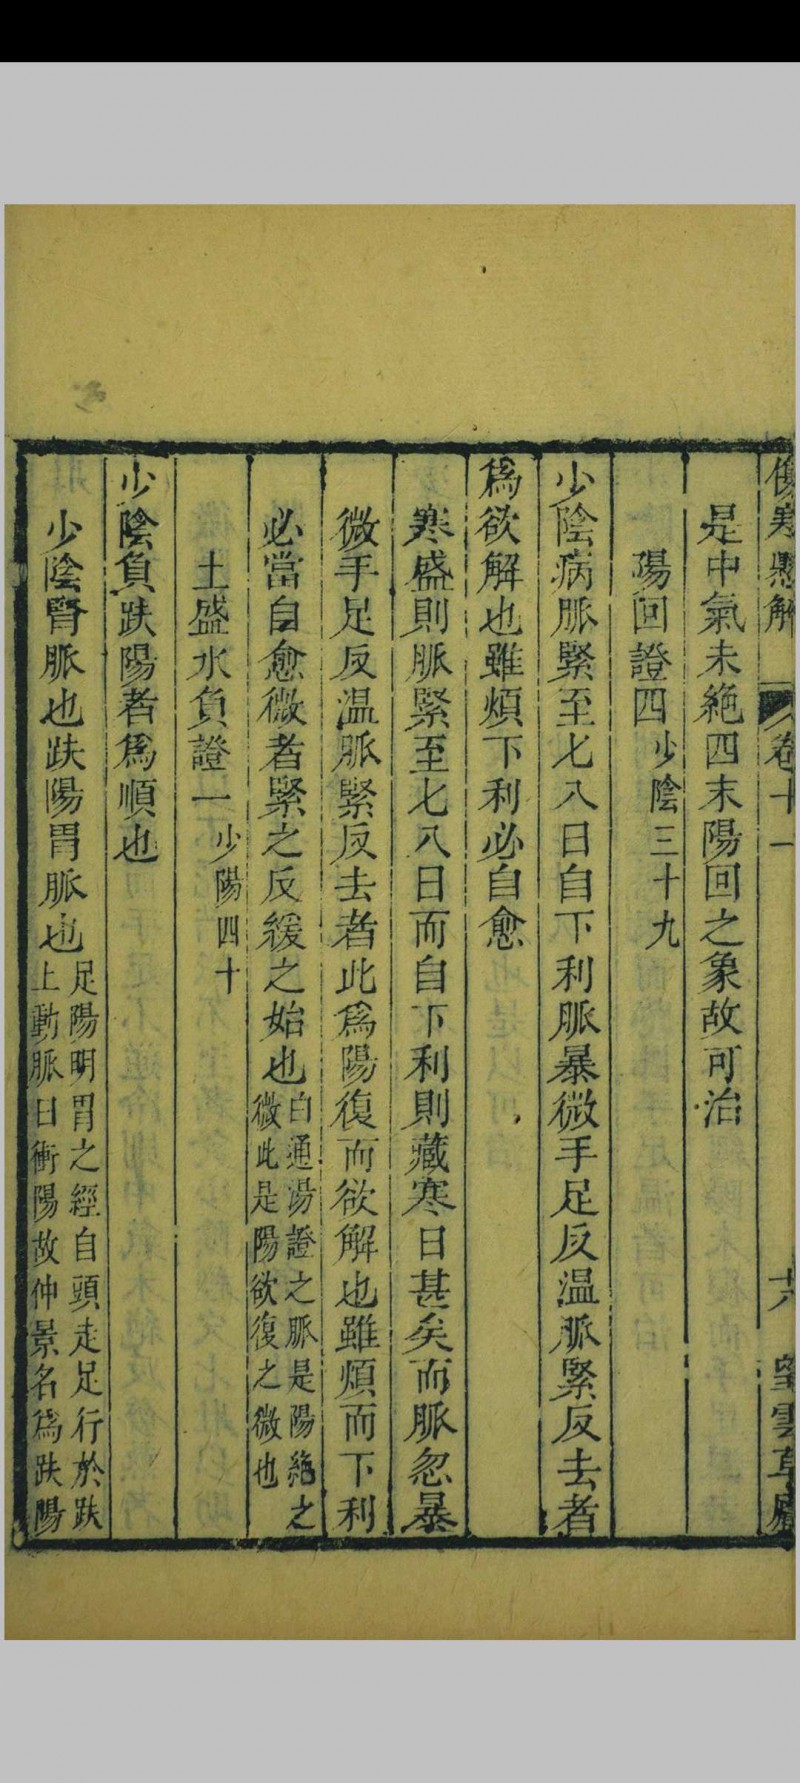 傷寒懸解 卷十一 十六 望雲草廬
是中氣未絶四末陽回之象故可治
陽回證四少陰三十九
少陰病脈緊至七八日自下利脈暴微手足反溫脈緊反去者
爲欲解也雖煩下利必自愈
寒盛則脈緊至七八日而自下利則藏寒日甚矣而脈忽暴
微手足反溫脈緊反去者此爲陽復而欲解也雖煩而下利
必當自愈微者緊之反緩之始也白通湯證之脈是陽絶之
微此是陽欲復之微也
土盛水負證一少陽四十
少陰負趺陽者爲順也
少陰腎脈也趺陽胃脈也足陽明胃之經自頭走足行於趺
上動脈曰衝陽故仲景名爲趺陽